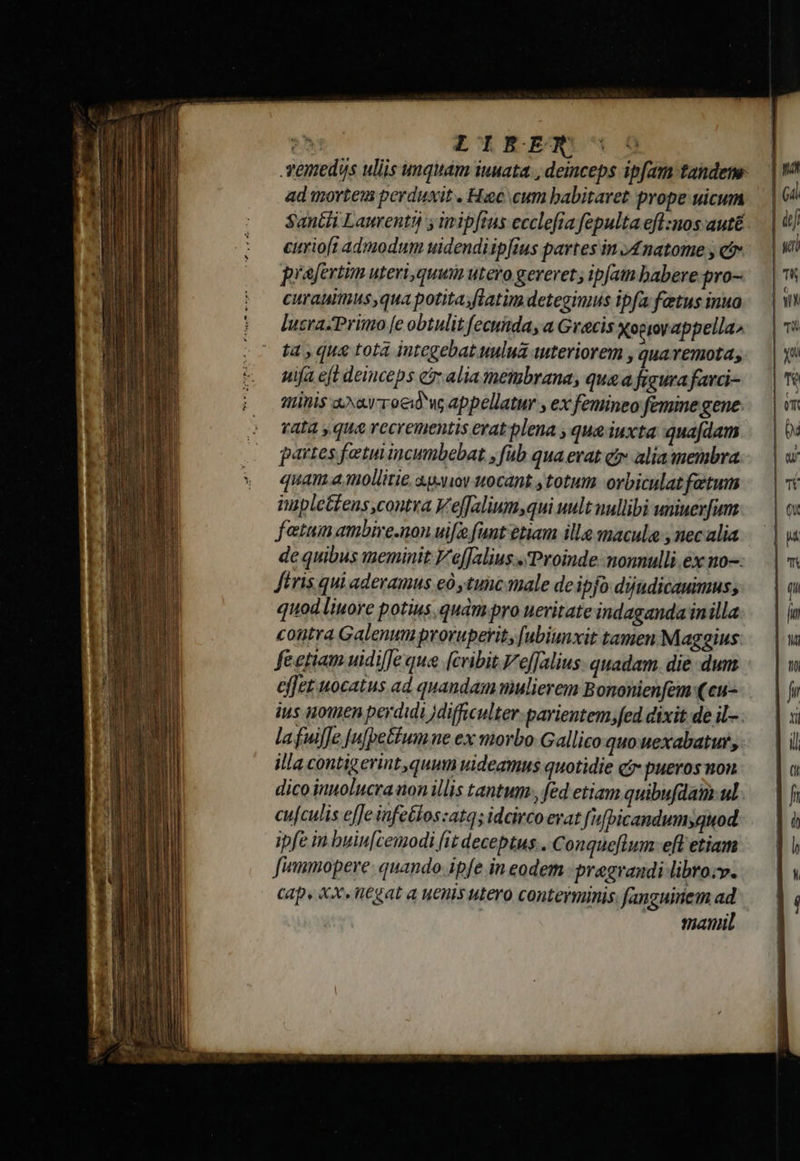 LIBER
remedijs ullis unquam iuuata, deinceps ipſam tandem
ad mortem perduxit. Hæc cum habitaret prope uicum
Sancti Laurentij, in ipſius eccleſia ſepulta eſt: nos autē
curioſi admodum uidendi ipſius partes in Anatome, &
præſertim uteri, quum utero gereret, ipſam habere pro-
curauimus, qua potita, ſtatim detegimus ipſa fœtus inuo
lucra. Primo ſe obtulit fecunda, a Græcis χοριον appella-
ta, quæ totā integebat uuluā interiorem, qua remota,
uiſa eſt deinceps & alia membrana, quæ a figura farci-
minis αλαντοειδὴς appellatur, ex femineo ſemine gene
rata, quæ recrementis erat plena, quæ iuxta quaſdam
partes fœtui incumbebat, ſub qua erat & alia membra
quam a mollitie αμνιον uocant, totum orbiculat fœtum
implectens, contra Veſſalium, qui uult nullibi uniuerſum
fœtum ambire. non uiſæ ſunt etiam illæ maculæ, nec alia
de quibus meminit Veſſalius. Proinde nonnulli ex no-
ſtris qui aderamus eò, tunc male de ipſo dijudicauimus,
quod liuore potius, quàm pro ueritate indaganda in illa
contra Galenum proruperit, ſubiunxit tamen Maggius
ſe etiam uidiſſe quæ ſcribit Veſſalius quadam die dum
eſſet uocatus ad quandam mulierem Bononienſem (cu-
ius nomen perdidi) difficulter parientem, ſed dixit de il-
la fuiſſe ſuſpectum ne ex morbo Gallico quo uexabatur,
illa contigerint, quum uideamus quotidie & pueros non
dico inuolucra non illis tantum, ſed etiam quibuſdam ul
cuſculis eſſe infectos: atq; idcirco erat ſuſpicandum, quod
ipſe in huiuſcemodi ſit deceptus. Conqueſtum eſt etiam
ſummopere quando ipſe in eodem prægrandi libro. v.
cap. xx. negat a uenis utero conterminis ſanguinem ad
mamil